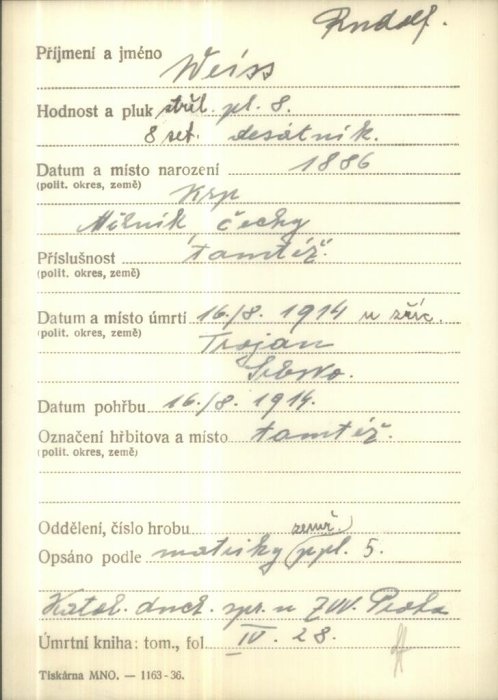 Rudolf.
Příjmení a jméno Weiss
Hodnost a pluk střel. pl. 8.
8 set. desátník.
Datum a místo narození 1886
(polit. okres, země)
Krp
Mělník Čechy
Příslušnost tamtéž.
(polit. okres, země)
Datum a místo úmrtí 16./8. 1914 u zříc.
(polit. okres, země)
Trojan
Srbsko.
Datum pohřbu 16./8. 1914.
Označení hřbitova a místo tamtéž.
(polit. okres, země)
Oddělení, číslo hrobu
zemř.
Opsáno podle matriky ppl. 5.
Katol. duch. spr. u ZVV. Praha
Úmrtní kniha: tom., fol IV. 28.
Tiskárna MNO. — 1163-36.